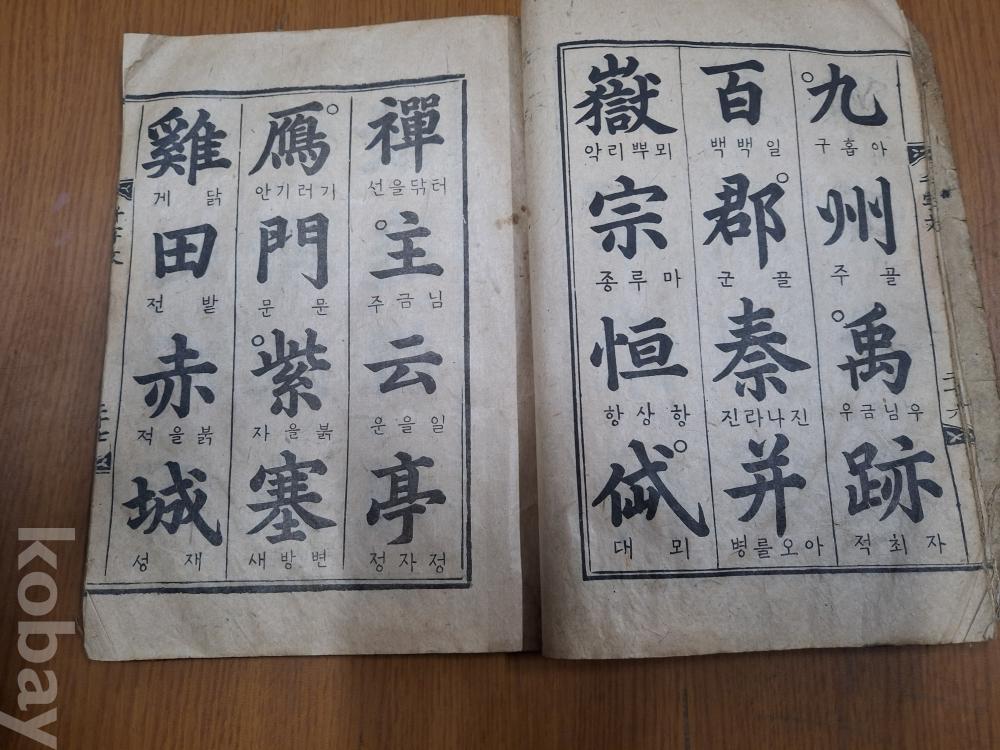 九
아홉구
州
골주
禹
우님금우
跡
자최적
百
일백백
郡
골군
秦
진나라진
并
아오를병
嶽
뫼뿌리악
宗
마루종
恒
항상항
岱
뫼대
禪
터닦을선
主
님금주
云
일을운
亭
정자정
鴈
기러기안
門
문문
紫
붉을자
塞
변방새
雞
닭게
田
발전
赤
붉을적
城
재성
二十七
kobay